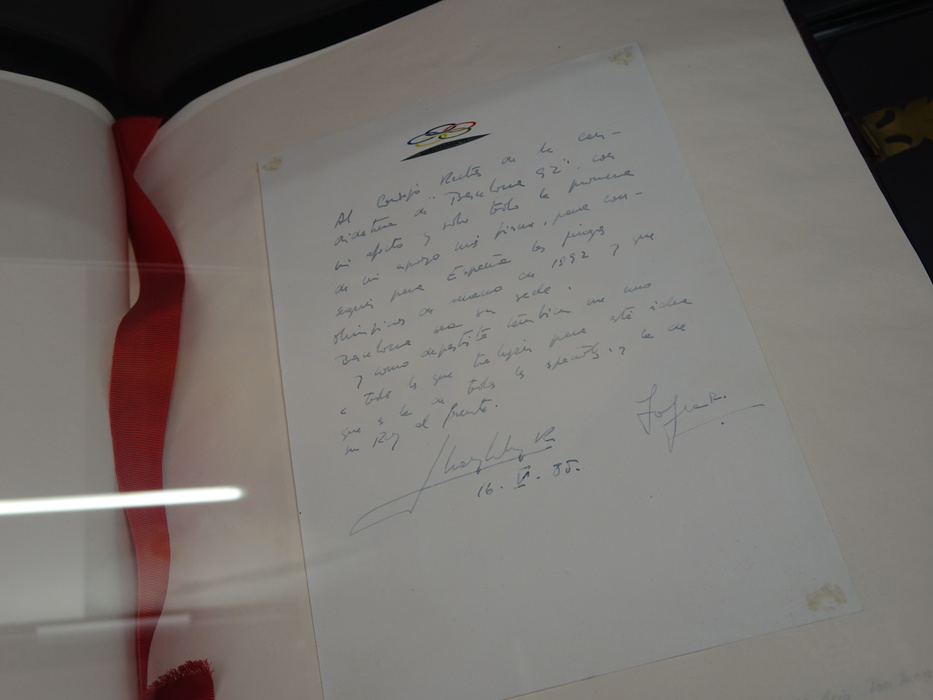 Al Consejo Rector de la can-
didatura de "Barcelona 92", con
mi afecto y sobre todo la promesa
de mi apoyo más firme, para con-
seguir para España los juegos
olímpicos de verano de 1892 y que
Barcelona sea su sede.
y como deportista también me uno
a todos los que trabajan para esta idea
que es la de todos los españoles, y la de
su Rey al frente.
Juan Carlos R.
Sofía R.
16. V. 85.